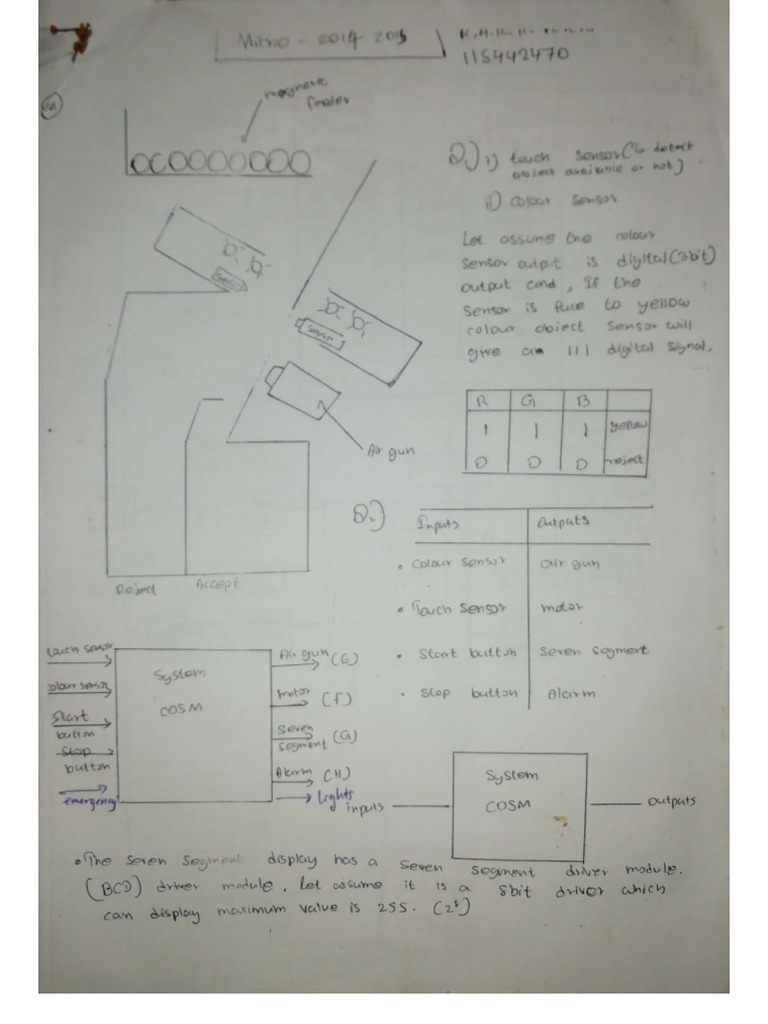 Mitrio - 2014-2015
115442470
magnetic
feeder
Q1) i) touch sensor (to detect
object available or not)
ii) colour sensor
Let assume the colour
sensor outpt is digital (3bit)
output and, If the
sensor is face to yellow
colour object sensor will
give an 111 digital signal.
sensor
R G B
1 1 1 yellow
0 0 0 reject
Air gun
Reject Accept
Q2)
Inputs Outputs
• Colour sensor air gun
• Touch sensor motor
• Start button Seven segment
• Stop button Alarm
touch sensor
colour sensor
Start
button
Stop
button
emergency
System
COSM
Air gun (E)
motor (F)
Seven
segment (G)
Alarm (H)
Lights
inputs
System
COSM
outputs
• The seven segment display has a seven segment driver module.
(BCD) driver module. Let assume it is a 8bit driver which
can display maximum value is 255. (2⁸)